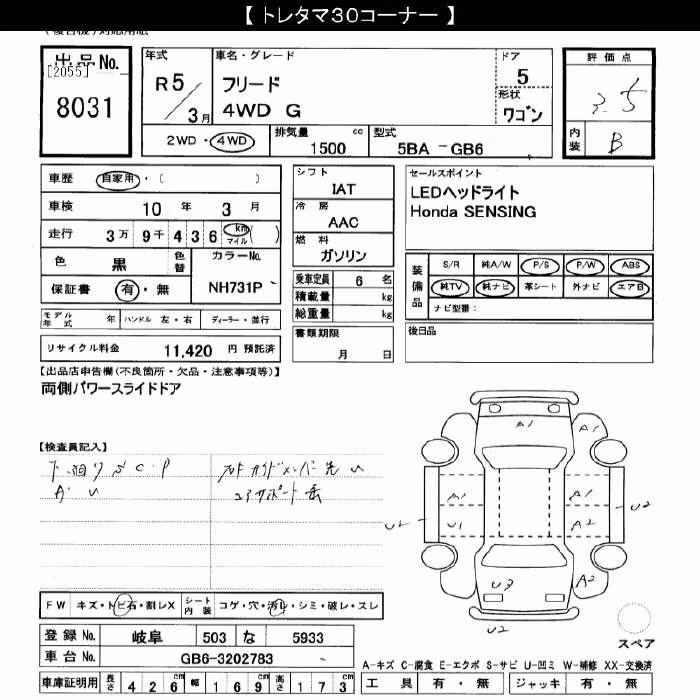 【 トレタマ30コーナー 】
出品No.
[2055]
8031
年式
R5/3月
車名・グレード
フリード
4WD G
ドア
5
形状
ワゴン
評価点
3.5
内装
B
2WD・4WD
排気量
1500 cc
型式
5BA -GB6
車歴 自家用・( )
車検 10 年 3 月
走行 3万 9千 4 3 6 km マイル ( )
色 黒 色替 カラーNo.
NH731P
保証書 有・無
モデル年式 年 ハンドル 左・右 ディーラー・並行
リサイクル料金 11,420 円 預託済
シフト
IAT
冷房
AAC
燃料
ガソリン
乗車定員 6 名
積載量 kg
総重量 kg
書類期限
月 日
セールスポイント
LEDヘッドライト
Honda SENSING
装備品
S/R 純A/W P/S P/W ABS
純TV 純ナビ 革シート 外ナビ エアB
ナビ型番:
後日品
【出品店申告欄(不良箇所・欠品・注意事項等)】
両側パワースライドドア
【検査員記入】
下廻りSC.P
A.U
コアサポート
A1
A1
A1
A1
U1
A2
U2
U2
U3
A2
U2
スペア
FW キズ・トビ石・割レX シート内装 コゲ・穴・汚レ・シミ・破レ・スレ
登録No. 岐阜 503 な 5933
車台No. GB6-3202783
車庫証明用 長さ 4 2 6 cm 幅 1 6 9 cm 高さ 1 7 3 cm
A-キズ C-腐食 E-エクボ S-サビ U-凹ミ W-補修 XX-交換済
工具 有・無 ジャッキ 有・無